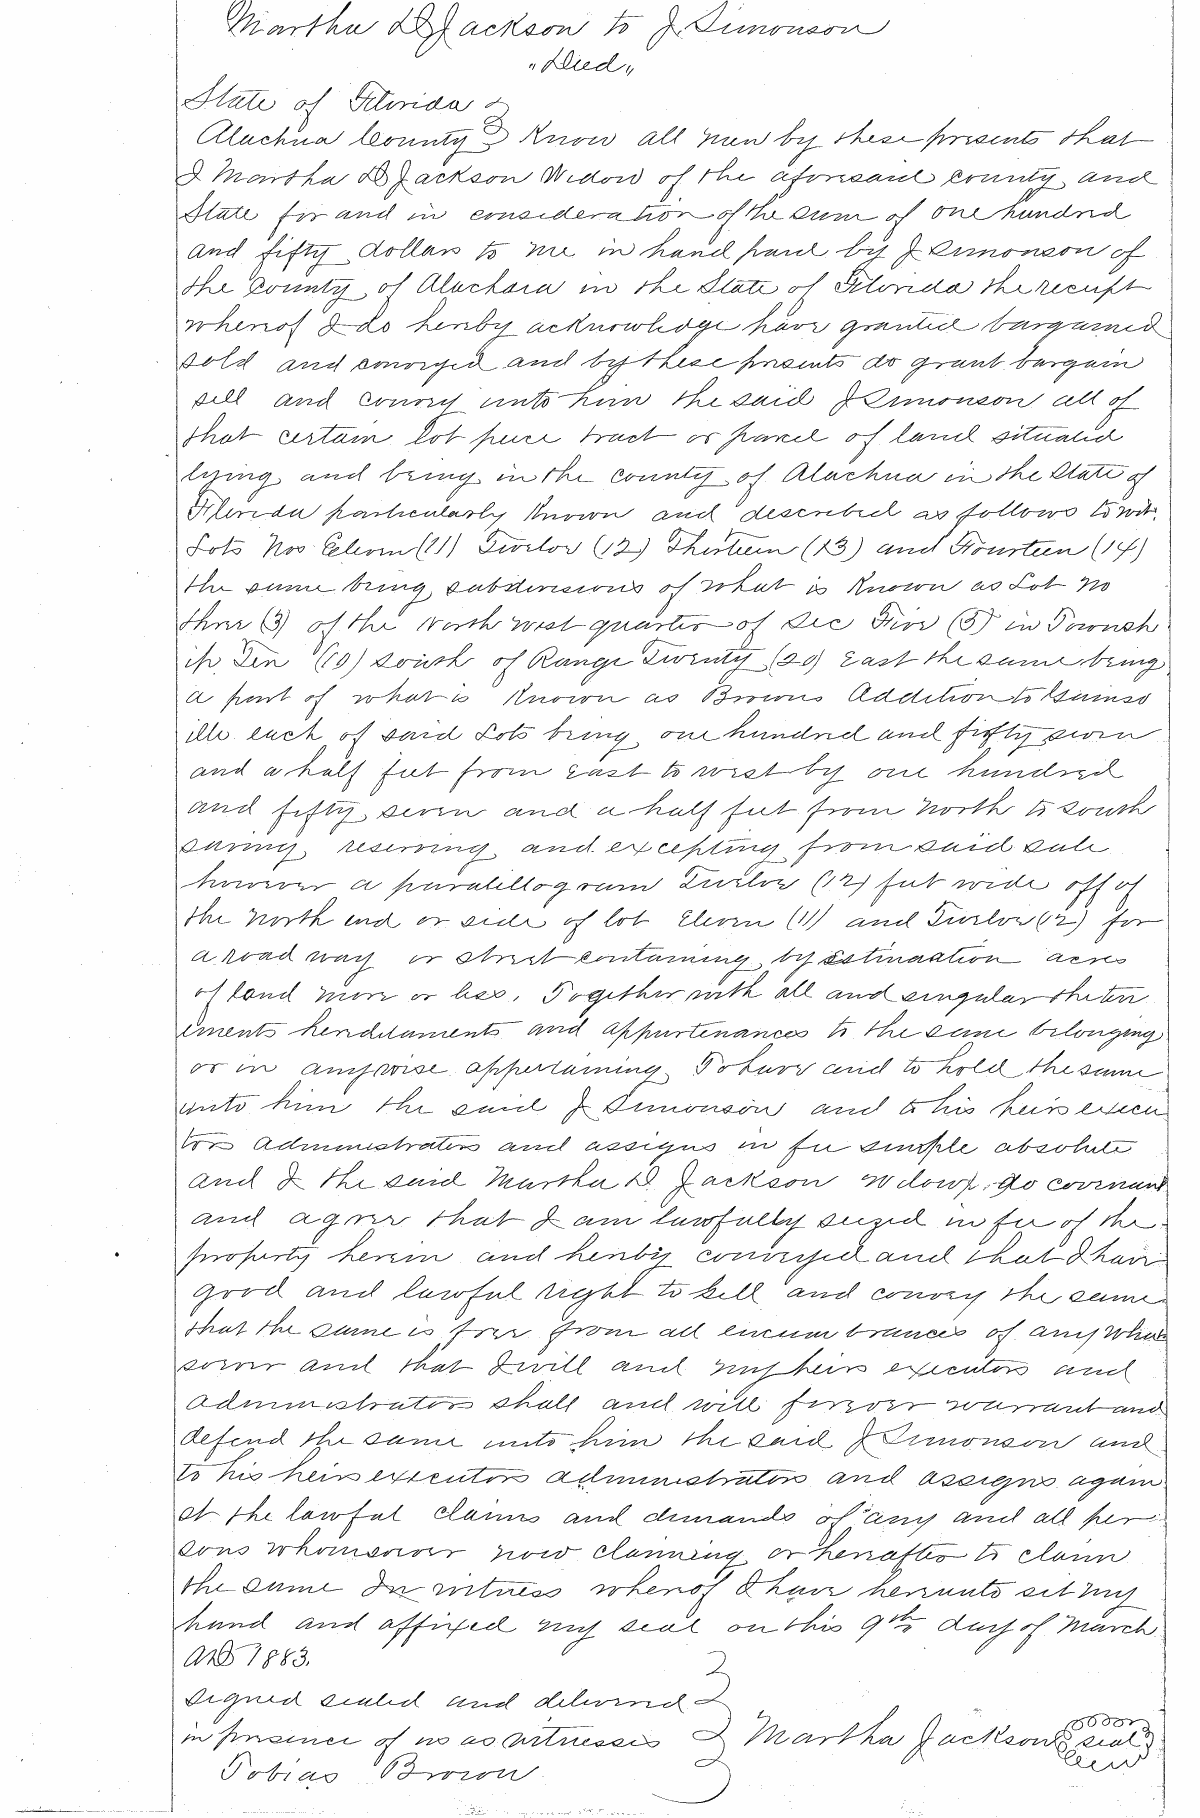 Martha D Jackson to J. Simonson
"Deed"
State of Florida
Alachua County Know all men by these presents that
I Martha D Jackson Widow of the aforesaid county and
State for and in consideration of the sum of one hundred
and fifty dollars to me in hand paid by J Simonson of
the County of Alachua in the State of Florida the receipt
whereof I do hereby acknowledge have granted bargained
sold and conveyed and by these presents do grant bargain
sell and convey unto him the said J Simonson all of
that certain lot peice tract or parcel of land situated
lying and being in the county of Alachua in the State of
Florida particularly known and described as follows to wit.
Lots Nos Eleven (11) Twelve (12) Thirteen (13) and Fourteen (14)
the same being subdivisions of what is known as Lot No
three (3) of the North west quarter of Sec Five (5) in Townsh
ip Ten (10) South of Range Twenty (20) East the same being
a part of what is known as Browns Addition to Gainsv
ille each of said Lots being one hundred and fifty seven
and a half feet from East to west by one hundred
and fifty seven and a half feet from North to South
saving reserving and excepting from said sale
however a paralellogram Twelve (12) feet wide off of
the North end or side of lot Eleven (11) and Twelve (12) for
a road way or street containing by estimation acres
of land more or less. Together with all and singular the ten
ements hereditaments and appurtenances to the same belonging
or in anywise appertaining To have and to hold the same
unto him the said J Simonson and to his heirs execu
tors administrators and assigns in fee simple absolute
and I the said Martha D. Jackson Widow do covenant
and agree that I am lawfully seized in fee of the
property herein and hereby conveyed and that I have
good and lawful right to sell and convey the same
that the same is free from all encumbrances of any what
soever and that I will and my heirs executors and
administrators shall and will forever warrant and
defend the same unto him the said J Simonson and
to his heirs executors administrators and assigns again
st the lawful claims and demands of any and all per
sons whomsoever now claiming or hereafter to claim
the same In witness whereof I have hereunto set my
hand and affixed my seal on this 9th day of March
AD 1883.
signed sealed and delivered
in presence of us as witnesses Martha Jackson seal
Tobias Brown